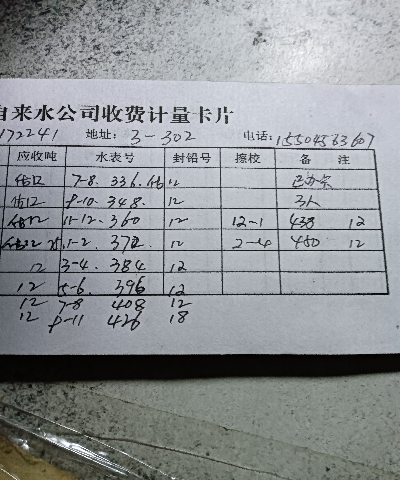 自来水公司收费计量卡片
172241 地址: 3-302 电话: 15504563607
应收吨 水表号 封铅号 擦校 备 注
估12 7-8. 336. 估 12
估12 8-10. 348. 12 3人
估12 11-12. 360 12 12-1 438 12
估12 1-2. 372 12 2-4 450 12
12 3-4. 384 12
12 5-6. 396 12
12 7-8 408 12
12 8-11 426 18